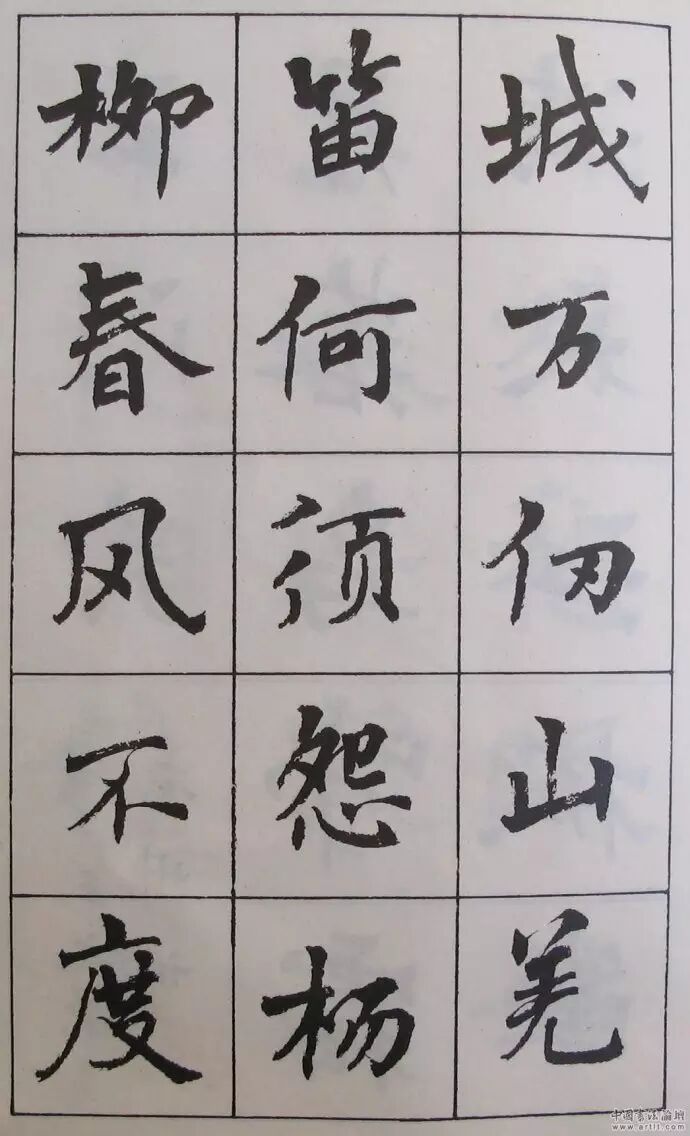 城万仞山羌
笛何须怨杨
柳春风不度
中国书法论坛
www.artit.com